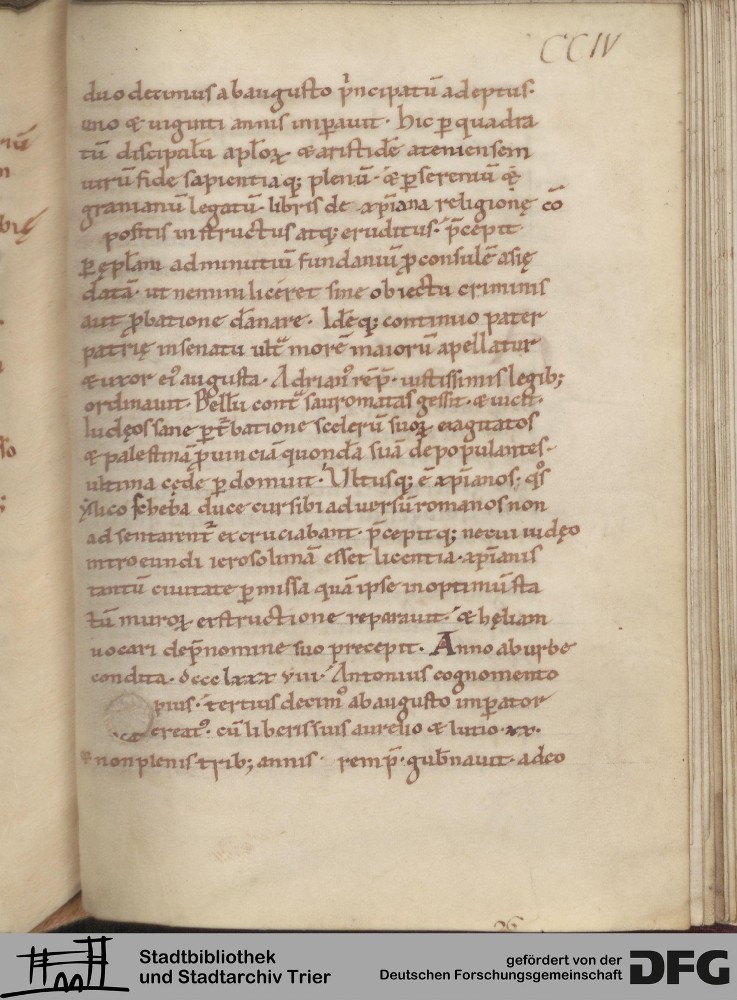 CCIV
duo decimus ab augusto p̄ncipatū adeptus·
uno & uiginti annis imꝑauit· hic ꝑ quadra
tū discipulū apl̄oꝝ· & aristidē ateniensem
uirū fide sapientiaq; plenū· & ꝑ serenū q̨
granianū legatū· libris de xp̄iana religionę cō
positis instructus atq; eruditus· p̄cepit
ꝑ ępl̄am ad minutiū fundanū ꝓconsulē asię
datā· ut nemini liceret sine obiectu criminis
aut ꝓbatione dānare· Idēq; continuo pater
patrię in senatu ult̄ morē maiorū apellatur
& uxor ei᾿ augusta· Adrian᾿ rēp̄· iustissimis legib;
ordinauit· Bellū cont̄ sauromatas gessit· & uicit·
Iudęos sane ꝑt̄batione scelerū suoꝝ exagitatos
& palestinā ꝓuinciā quondā suā depopulantes·
ultima cęde ꝑdomuit· Ultusq; ē xp̄ianos; q̄s
illico scheba duce cur sibi aduersū romanos non
adsentarent᾿ excruciabant· p̄cepitq; ne cui iudęo
introeundi ierosolimā esset licentia· xp̄ianis
tantū ciuitate ꝑmissa quā ipse in optimū sta
tū muroꝝ exstructione reparauit· & hęliam
uocari de p̄nomine suo precepit· Anno ab urbe
condita· dccclxxxviii· Antonius cognomento
pius· tertius decim᾿ ab augusto imꝑator
creat᾿· cū liberis suis aurelio & lutio· xx·
& non plenis trib; annis· remp̄· gub̄nauit· adeo
26
Stadtbibliothek
und Stadtarchiv Trier
gefördert von der
Deutschen Forschungsgemeinschaft
DFG